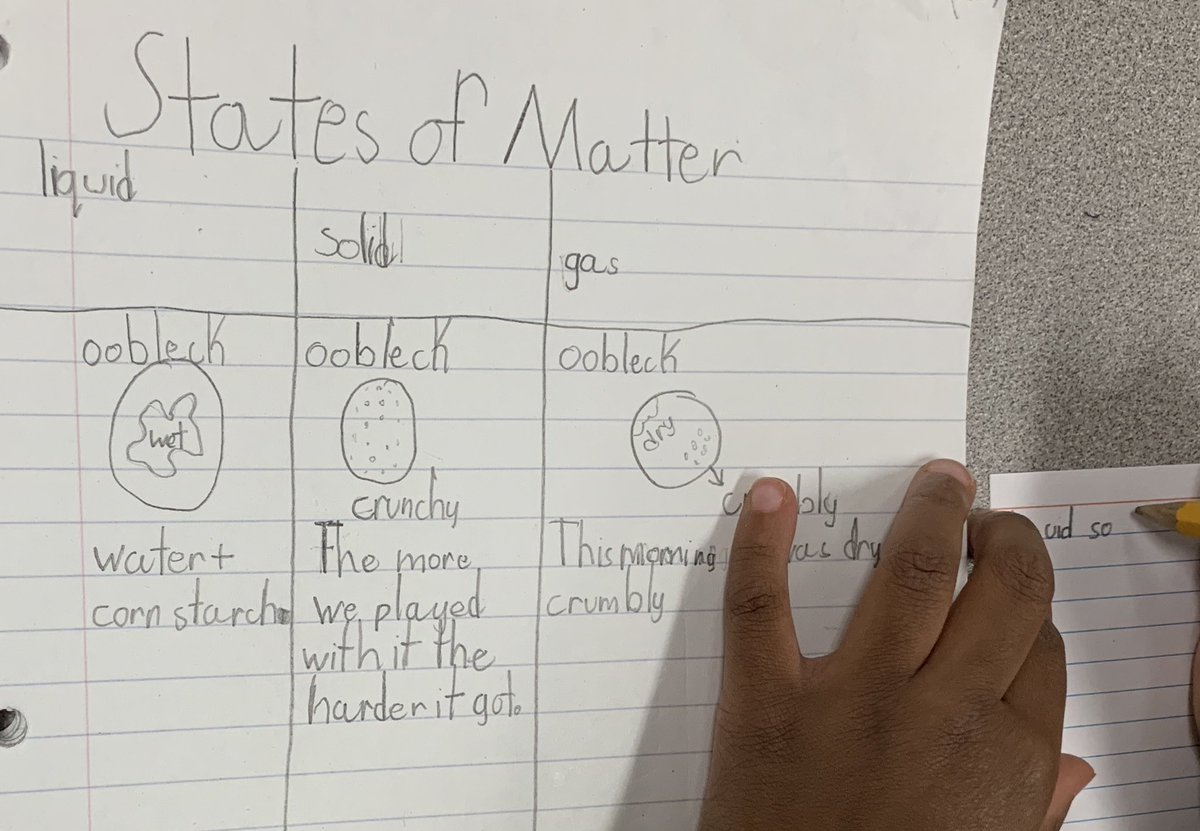 States of Matter
liquid
solid
gas
oobleck
wet
water +
corn starch
oobleck
crunchy
The more
we played
with it the
harder it got.
oobleck
dry
This morning was dry
crumbly
so